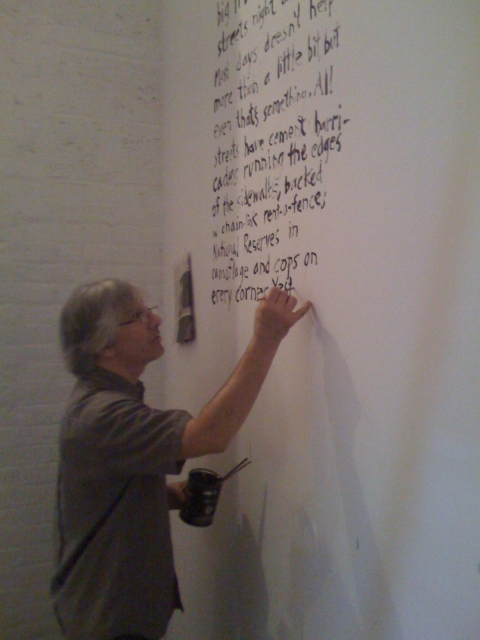 big
streets right
Most days doesn't help
more than a little bit but
even that's something. All
streets have cement barri-
cades running the edges
of the sidewalks, backed
w chain-link rent-a-fence;
National Reserves in
camouflage and cops on
every corner. Yest